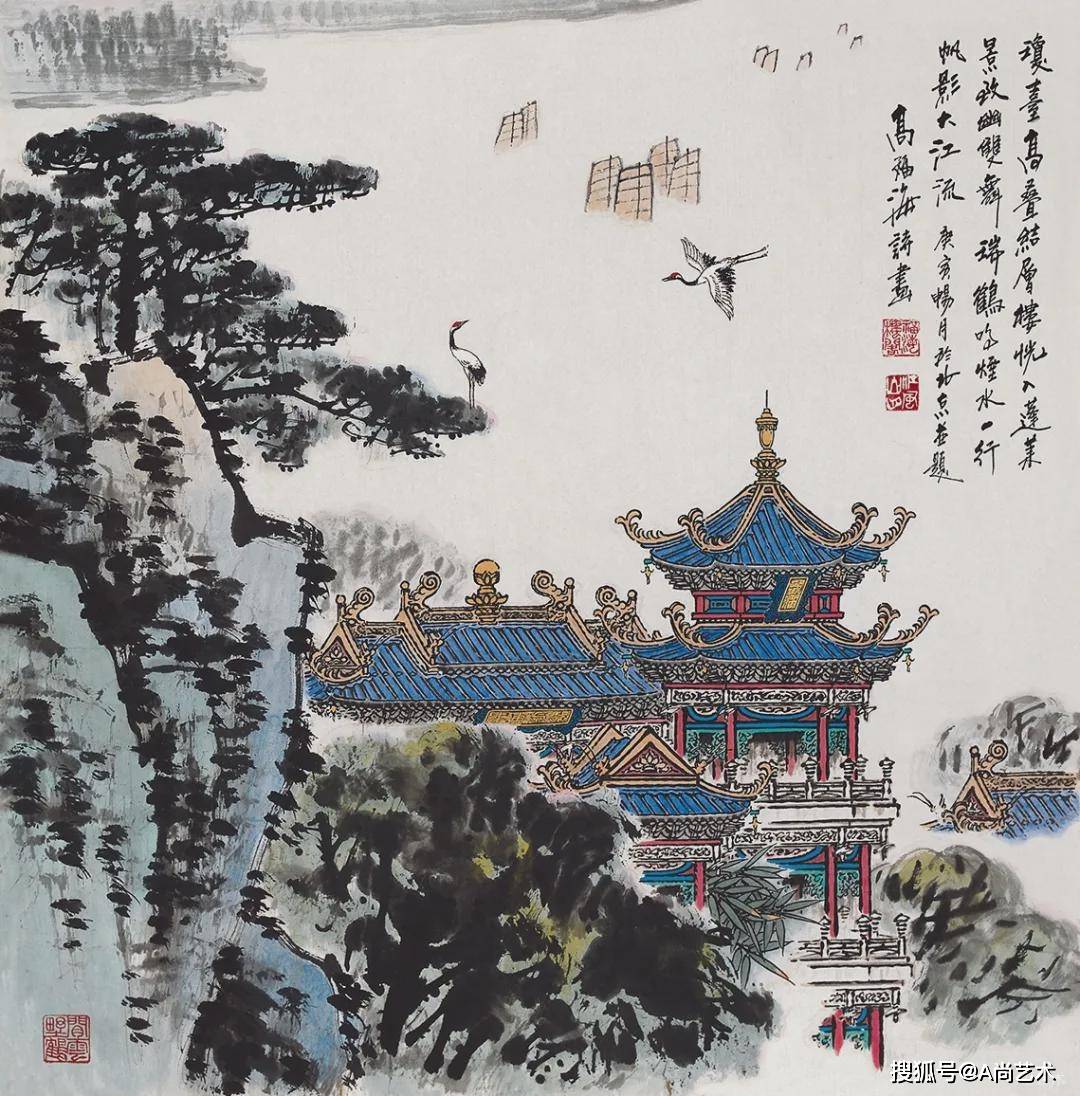 瓊臺高叠結層樓恍入蓬莱
景致幽雙舞瑞鶴吟煙水一行
帆影大江流 庚寅暢月於北京並題
高福海詩畫
閒雲野鶴
搜狐号@A尚艺术